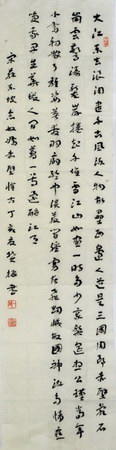 大江東去浪淘盡千古風流人物故壘西邊人道是三國周郎赤壁亂石
崩雲驚濤裂岸捲起千堆雪江山如畫一時多少豪傑遙想公瑾當年
小喬初嫁了雄姿英發羽扇綸巾談笑間檣櫓灰飛煙滅故國神遊多情應
笑我早生華髮人間如夢一尊還酹江月
宋蘇東坡念奴嬌赤壁懷古丁亥春書